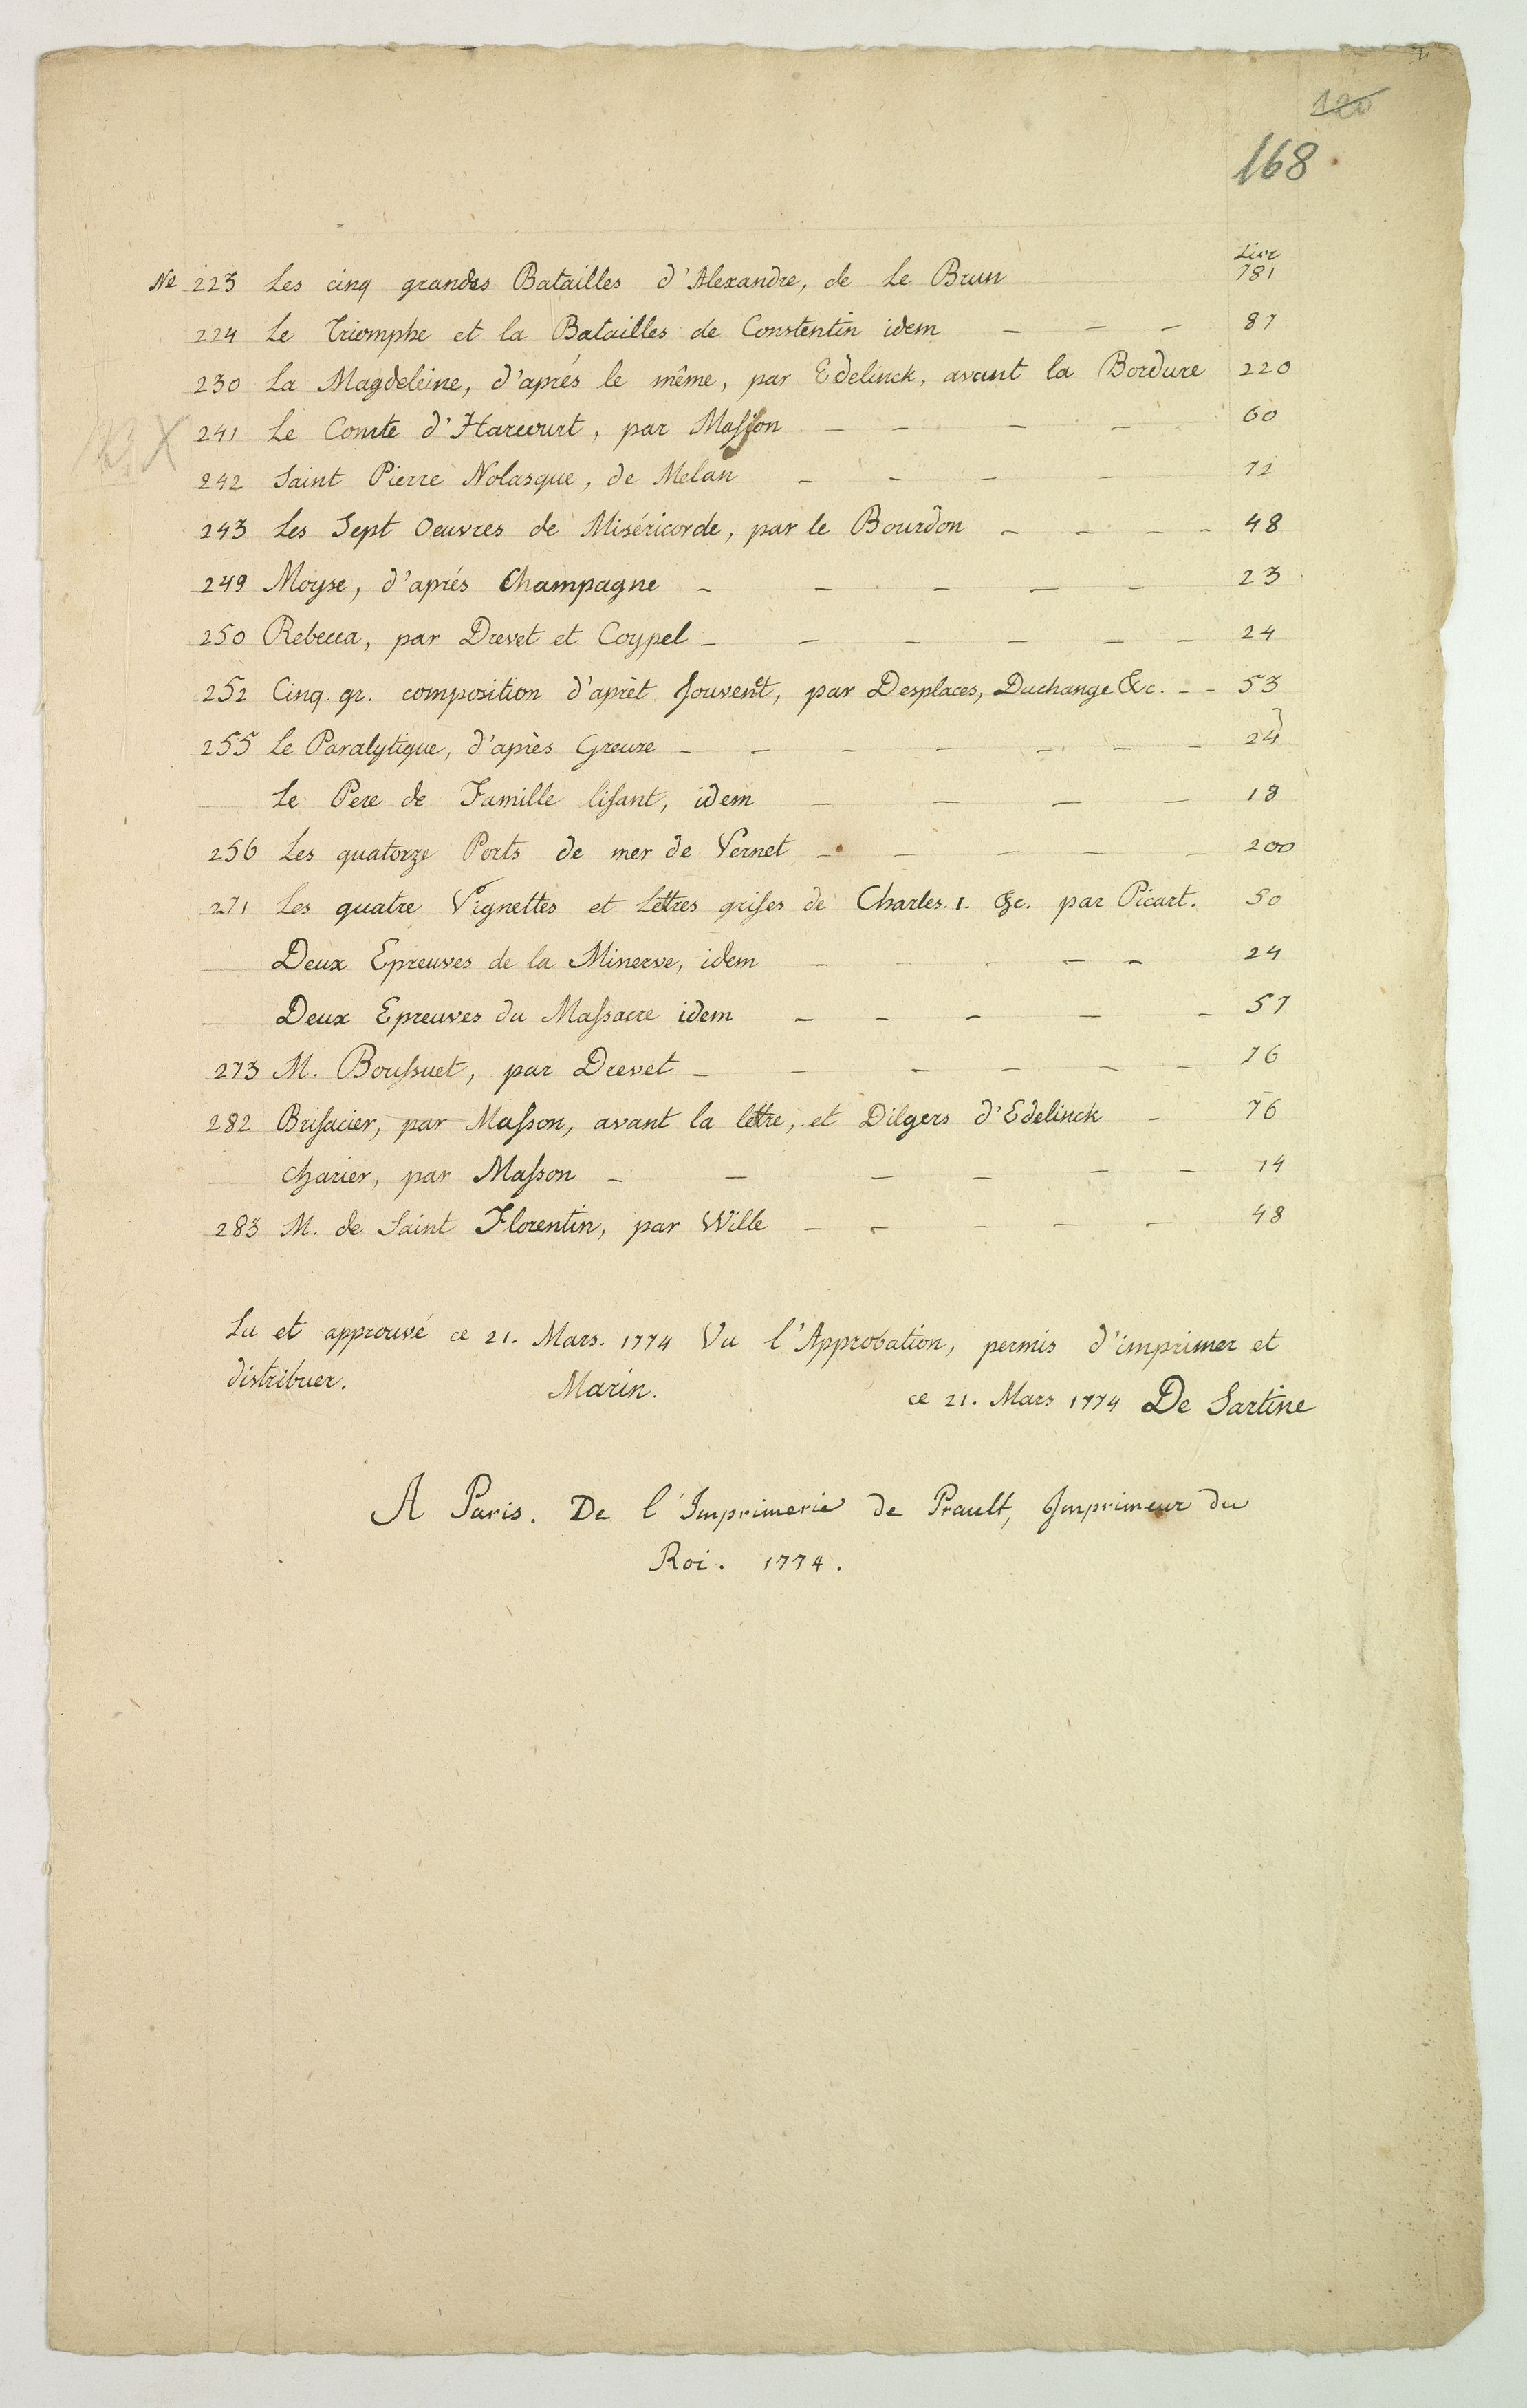 120
168.
Livr
Nº 223 Les cinq grandes Batailles d'Alexandre, de Le Brun 781
224 Le Triomphe et la Batailles de Constentin idem — — — 87
230 La Magdeleine, d'aprés le même, par Edelinck, avant la Bordure 220
241 Le Comte d'Harcourt, par Maſson — — — — 60
242 Saint Pierre Nolasque, de Melan — — — — 72
243 Les Sept Oeuvres de Miséricorde, par le Bourdon — — — — 48
249 Moyse, d'aprés Champagne — — — — — 23
250 Rebecca, par Drevet et Coypel — — — — — — 24
252 Cinq. gr. composition d'aprèt Jouvenet, par Desplaces, Duchange &c. — — 53
255 Le Paralytique, d'après Greuze — — — — — — — 24
Le Pere de Famille liſant, idem — — — — 18
256 Les quatorze Ports de mer de Vernet — — — — — 200
271 Les quatre Vignettes et Lettres griſes de Charles. I. &c. par Picart. 50
Deux Epreuves de la Minerve, idem — — — — 24
Deux Epreuves du Maſsacre idem — — — — — 57
273 M. Bouſsuet, par Drevet — — — — — — 76
282 Briſacier, par Maſson, avant la lettre, et Dilgers d'Edelinck — 76
Charier, par Maſson — — — — — — 14
283 M. de Saint Florentin, par Wille — — — — — 48
Lu et approuvé ce 21. Mars. 1774 Vu l'Approbation, permis d'imprimer et
distribuer. Marin. ce 21. Mars 1774 De Sartine
A Paris. De l'Imprimerie de Prault, Imprimeur du
Roi. 1774.